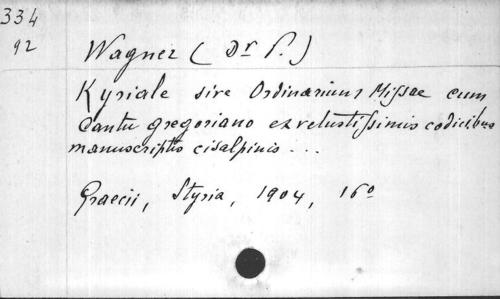 334
92
Wagner (Dr P.)
Kyriale sive Ordinarium Missae cum
Cantu gregoriano ex vetustissimis codicibus
manuscriptis cisalpinis ...
Graecii, Styria, 1904, 16o